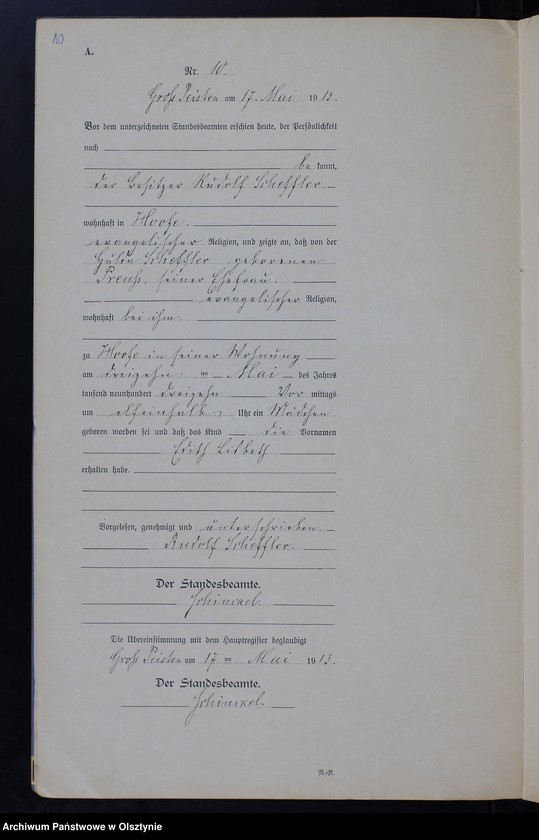 10
A.
Nr. 10.
Groß Peisten am 17. Mai 1913.
Vor dem unterzeichneten Standesbeamten erschien heute, der Persönlichkeit
nach
be kannt,
der Besitzer Rudolf Scheffler
wohnhaft in Hoofe.
evangelischer Religion, und zeigte an, daß von der
Hulda Scheffler geborenen
Preuß, seiner Ehefrau.
evangelischer Religion,
wohnhaft bei ihm
zu Hoofe in seiner Wohnung
am dreizehn ten Mai des Jahres
tausend neunhundert dreizehn Vor mittags
um elfeinhalb Uhr ein Mädchen
geboren worden sei und daß das Kind die Vornamen
Edith Lisbeth
erhalten habe.
Vorgelesen, genehmigt und unterschrieben.
Rudolf Scheffler.
Der Standesbeamte.
Schinckel.
Die Übereinstimmung mit dem Hauptregister beglaubigt
Groß Peisten am 17 ten Mai 1913.
Der Standesbeamte.
Schinckel.
N.-R.
Archiwum Państwowe w Olsztynie